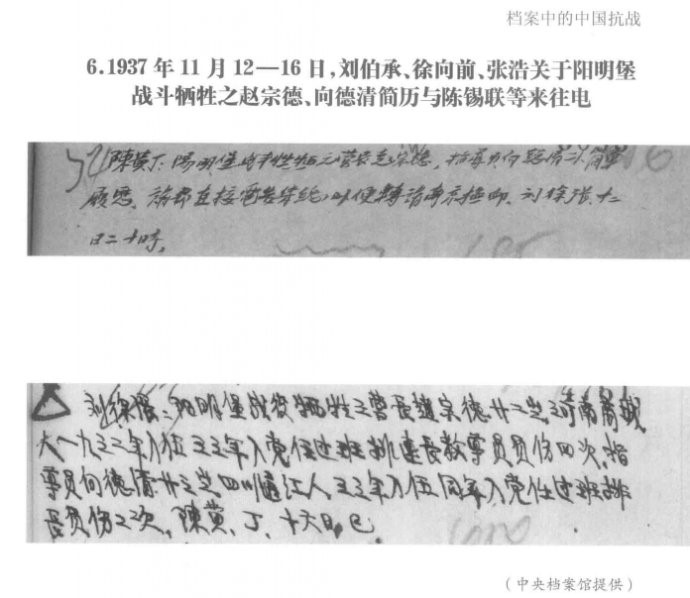 档案中的中国抗战
6.1937 年 11 月 12—16 日，刘伯承、徐向前、张浩关于阳明堡
战斗牺牲之赵宗德、向德清简历与陈锡联等来往电
陳黄丁：陽明堡 牺牲 营長赵宗德，指
履歷，請即直接電告 以便轉請南京 刘徐張 十二
日二十时。
刘徐張：阳明堡战役牺牲之营长趙宗德廿二岁河南商城
人一九三二年入伍三三年入党任过班排連長教導員负伤四次，指
導員向德清廿三岁四川通江人三三年入伍同年入党任过班排
長负伤二次，陳黄、丁、十六日，巳
（中央档案馆提供）